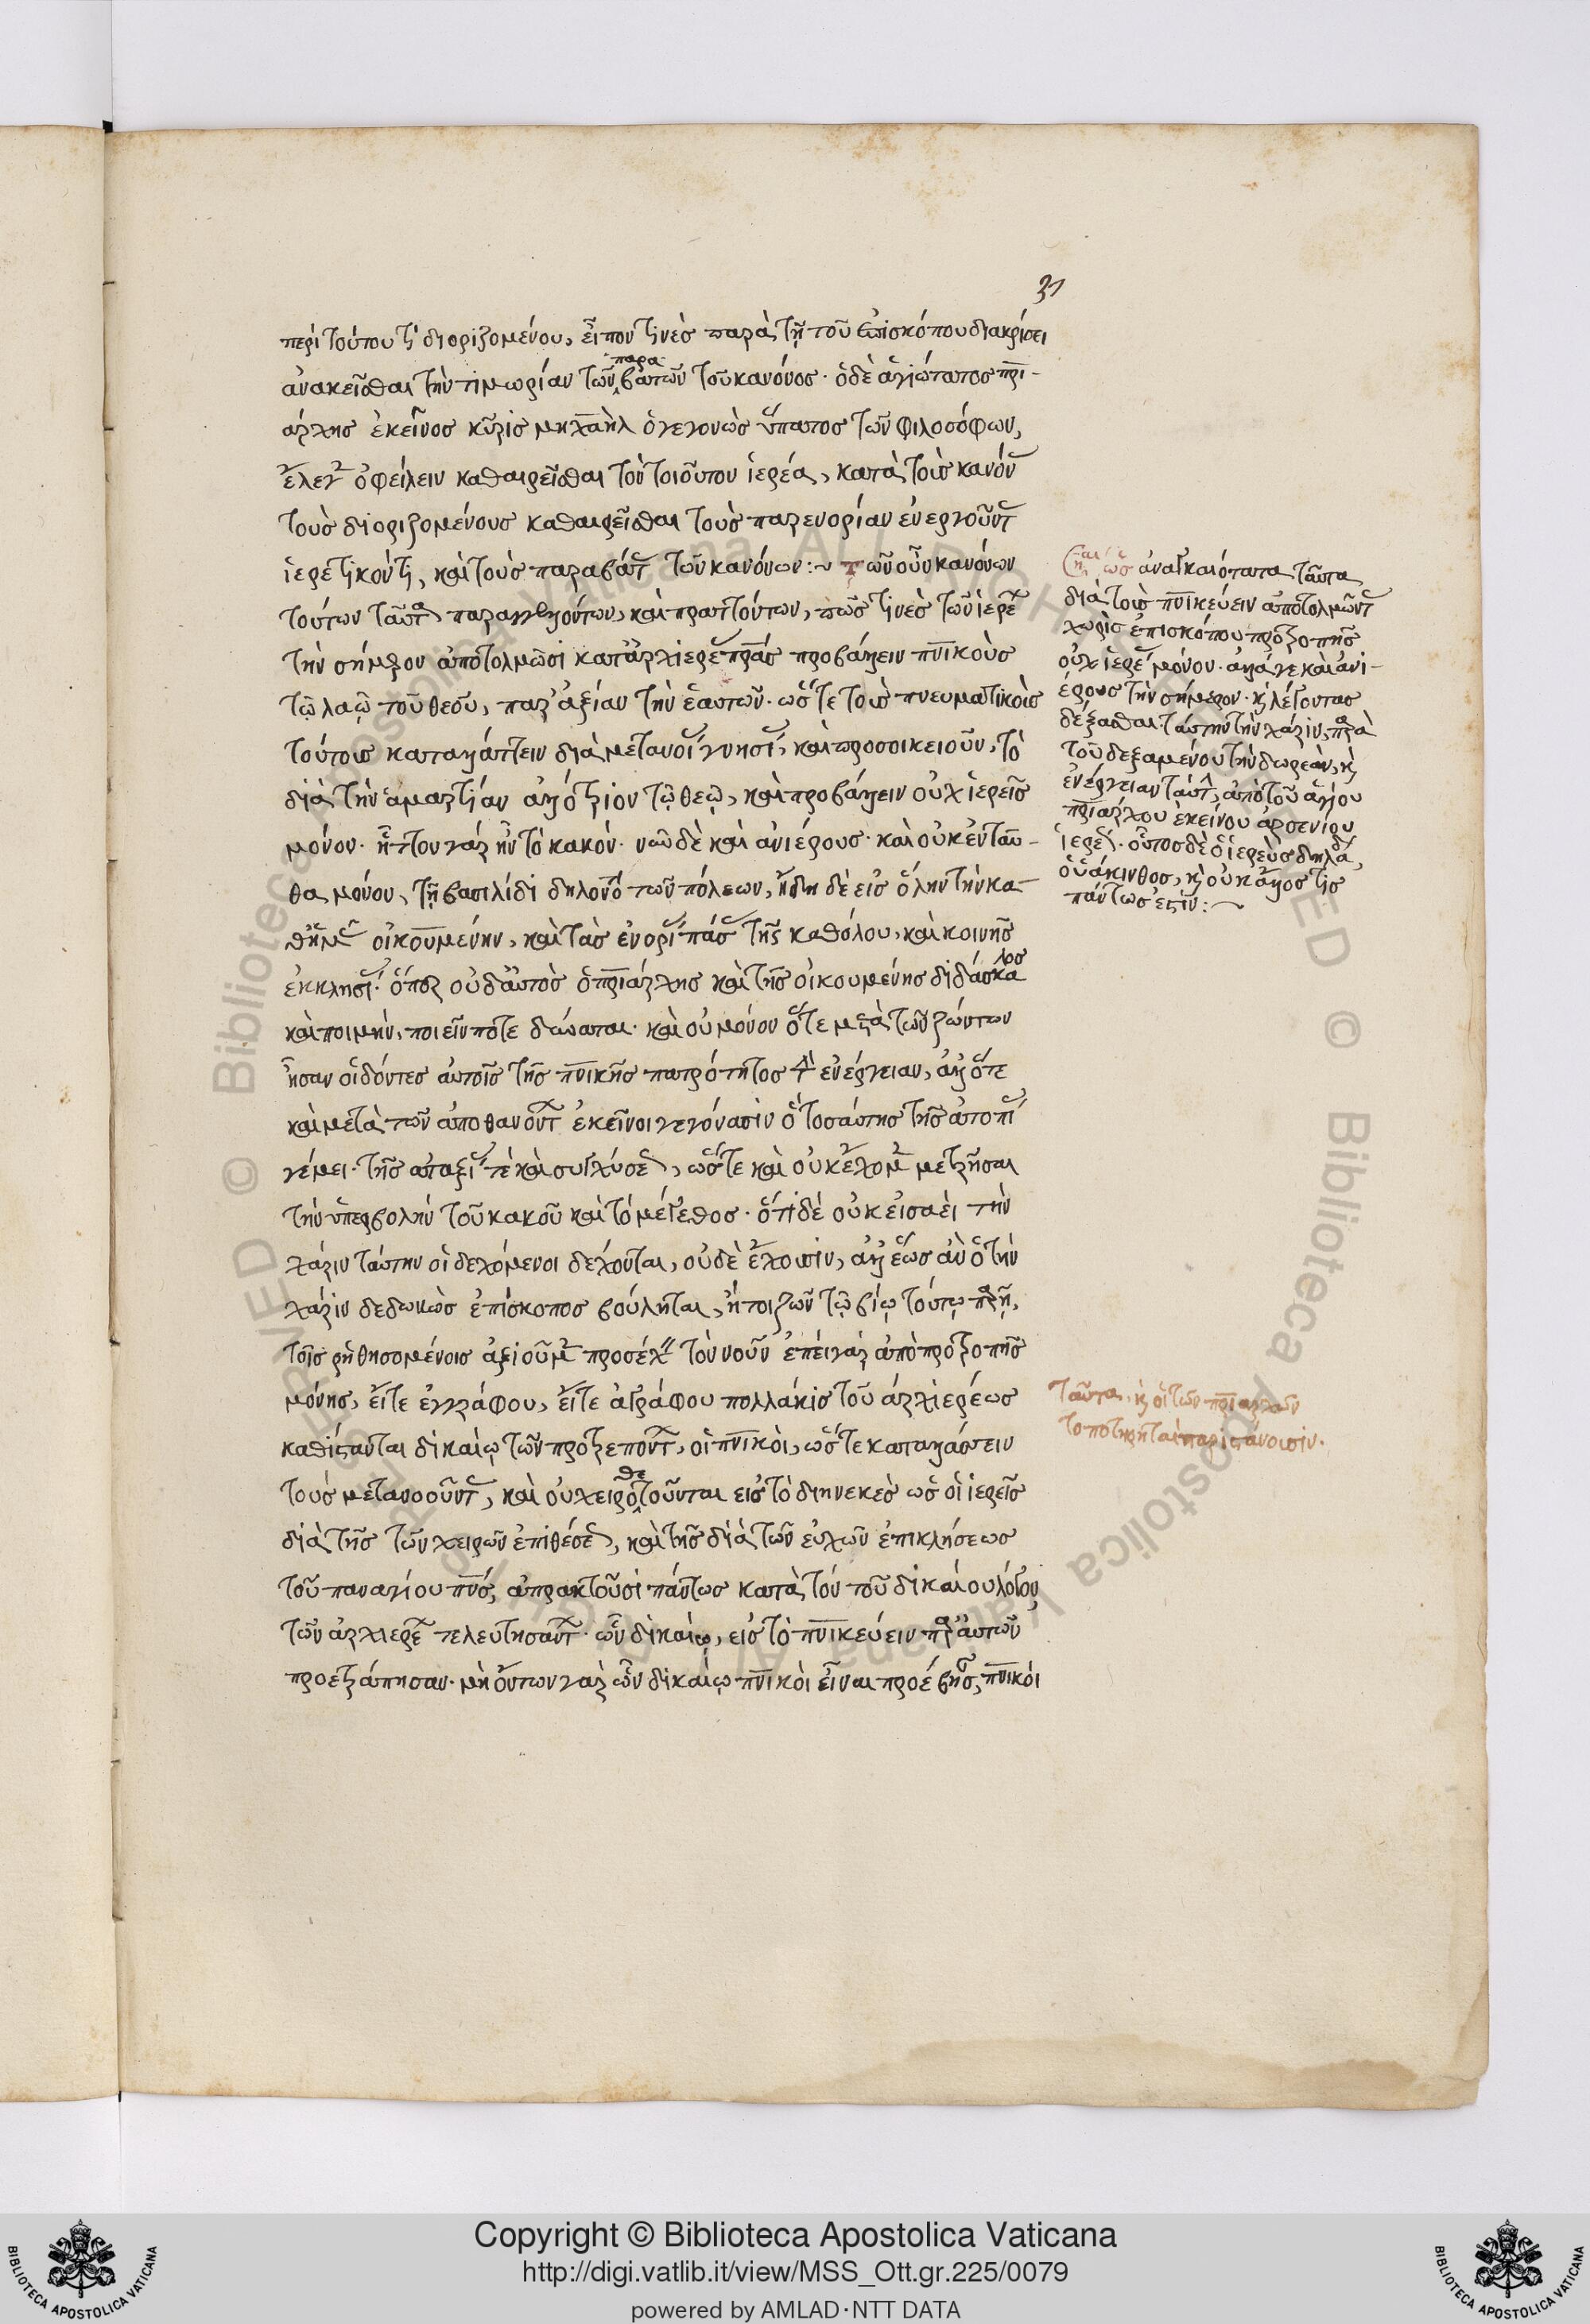 31
περὶ τούτου τί διοριζομένου, εἶπον τινὲσ παρὰ τῇ τοῦ ἐπισκόπου διακρίσει
ἀνακεῖσθαι τὴν τιμωρίαν τῶν παραβατῶν τοῦ κανόνοσ· ὁ δὲ ἁγιώτατοσ πρι-
άρχησ ἐκεῖνοσ κῦρισ μιχαὴλ ὁ γεγονὼσ ὕπατοσ τῶν φιλοσόφων,
ἔλεγ ὀφείλειν καθαιρεῖσθαι τὸν τοιοῦτον ἱερέα, κατὰ τοὺσ κανόν
τοὺσ διοριζομένουσ καθαιρεῖσθαι τοὺσ παρενορίαν ἐνεργοῦντ
ἱερατικόν τι, καὶ τοὺσ παραβάτ τῶν κανόνων:~ τῶν οὖν κανόνων
τούτων ταῦτ παραγγελλόντων, καὶ πραττόντων, πῶσ τινὲσ τῶν ἱερέ
τὴν σήμερον ἀποτολμῶσι κατ ἀρχιερε πρᾶσ προβάλλειν πνικοὺσ
τῷ λαῷ τοῦ θεοῦ, παρ' ἀξίαν τὴν ἑαυτῶν· ὥστε τοὺσ πνευματικοὺσ
τούτουσ καταλλάττειν διὰ μετανοί γνησί, καὶ προσοικειοῦν, τὸ
διὰ τὴν ἁμαρτίαν ἀλλότριον τῷ θεῷ, καὶ προβάλλειν οὐχ ἱερεῖσ
μόνον· ἧττον γὰρ ἦν τὸ κακόν· νῦν δὲ καὶ ἀνιέρουσ· καὶ οὐκ ἐνταῦ-
θα μόνον, τῇ βασιλίδι δηλονό τῶν πόλεων, ἤδη δὲ εἰσ ὅλην τὴν κα-
θ' ἡμ οἰκουμένην, καὶ τὰσ ἐνορί πάσ τῆσ καθόλου, καὶ κοινῆσ
ἐκκλησί· ὅπερ οὐδ' αὐτὸσ ὁ πριάρχησ καὶ τῆσ οἰκουμένησ διδάσκαλοσ
καὶ ποιμὴν, ποιεῖν ποτε δύναται· καὶ οὐ μόνον ὅτε μετὰ τῶν ζώντων
ἦσαν οἱ δόντεσ αὐτοῖσ τῆσ πνικῆσ πατρότητοσ τὴν ἐνέργειαν, ἀλλ' ὅτε
καὶ μετὰ τῶν ἀποθανόντ ἐκεῖνοι γεγόνασιν ὃ τοσαύτησ τῆσ ἀτοπί
γέμει· τῆσ ἀταξί τὲ καὶ συγχύσε, ὥστε καὶ οὐκ ἔχομ μετρῆσαι
τὴν ὑπερβολὴν τοῦ κακοῦ καὶ τὸ μέγεθοσ· ὅτι δὲ οὐκ εἰσαεὶ τὴν
χάριν ταύτην οἱ δεχόμενοι δέχονται, οὐδὲ ἔχουσιν, ἀλλ' ἕωσ ἂν ὁ τὴν
χάριν δεδωκὼσ ἐπίσκοποσ βούληται, ἤτοι ζῶν τῷ βίῳ τούτῳ παρῇ,
τοῖσ ῥηθησομένοισ ἀξιοῦμ προσέχ τὸν νοῦν ἐπεὶ γὰρ ἀπὸ προτροπῆσ
μόνησ, εἴτε ἐγγράφου, εἴτε ἀγράφου πολλάκισ τοῦ ἀρχιερέωσ
καθίστανται δικαίῳ τῶν προτρεπόντ, οἱ πνικοὶ, ὥστε καταλλάσσειν
τοὺσ μετανοοῦντ, καὶ οὐ χειροθετοῦνται εἰσ τὸ διηνεκὲσ ὡσ οἱ ἱερεῖσ
διὰ τῆσ τῶν χειρῶν ἐπιθέσε, καὶ τῆσ διὰ τῶν εὐχῶν ἐπικλήσεωσ
τοῦ παναγίου πνσ, ἀπρακτοῦσι πάντωσ κατὰ τὸν τοῦ δικαίου λόγον,
τῶν ἀρχιερέ τελευτησάντ· ὧν δικαίῳ, εἰσ τὸ πνικεύειν παρ' αὐτῶν
προετράπησαν· μὴ ὄντων γὰρ ὧν δικαίῳ πνικοὶ εἶναι προέβησ, πνικοὶ
ὡσ ἀναγκαιότατα ταῦτα
διὰ τοὺσ πνικεύειν ἀποτολμῶντ
χωρὶσ ἐπισκόπου προτροπῆσ
οὐχ ἱερέ μόνον· ἀλλά γε καὶ ἀνι-
έρουσ τὴν σήμερον· κ λέγοντασ
δέξασθαι ταύτην τὴν χάριν, παρὰ
τοῦ δεξαμένου τὴν δωρεὰν, κ
ἐνέργειαν ταύτ, ἀπὸ τοῦ ἁγίου
πριάρχου ἐκείνου ἀρσενίου
ἱερέ· οὗτοσ δὲ ὁ ἱερεὺσ δηλά,
ὁ ὑάκινθοσ, κ οὐκ ἄλλοσ τισ
πάντωσ ἐστίν:~
ταῦτα, κ οἱ τῶν πριαρχῶν
τοποτηρηταὶ παριστάνουσιν·
Copyright © Biblioteca Apostolica Vaticana
http://digi.vatlib.it/view/MSS_Ott.gr.225/0079
powered by AMLAD·NTT DATA
BIBLIOTECA APOSTOLICA VATICANA
BIBLIOTECA APOSTOLICA VATICANA